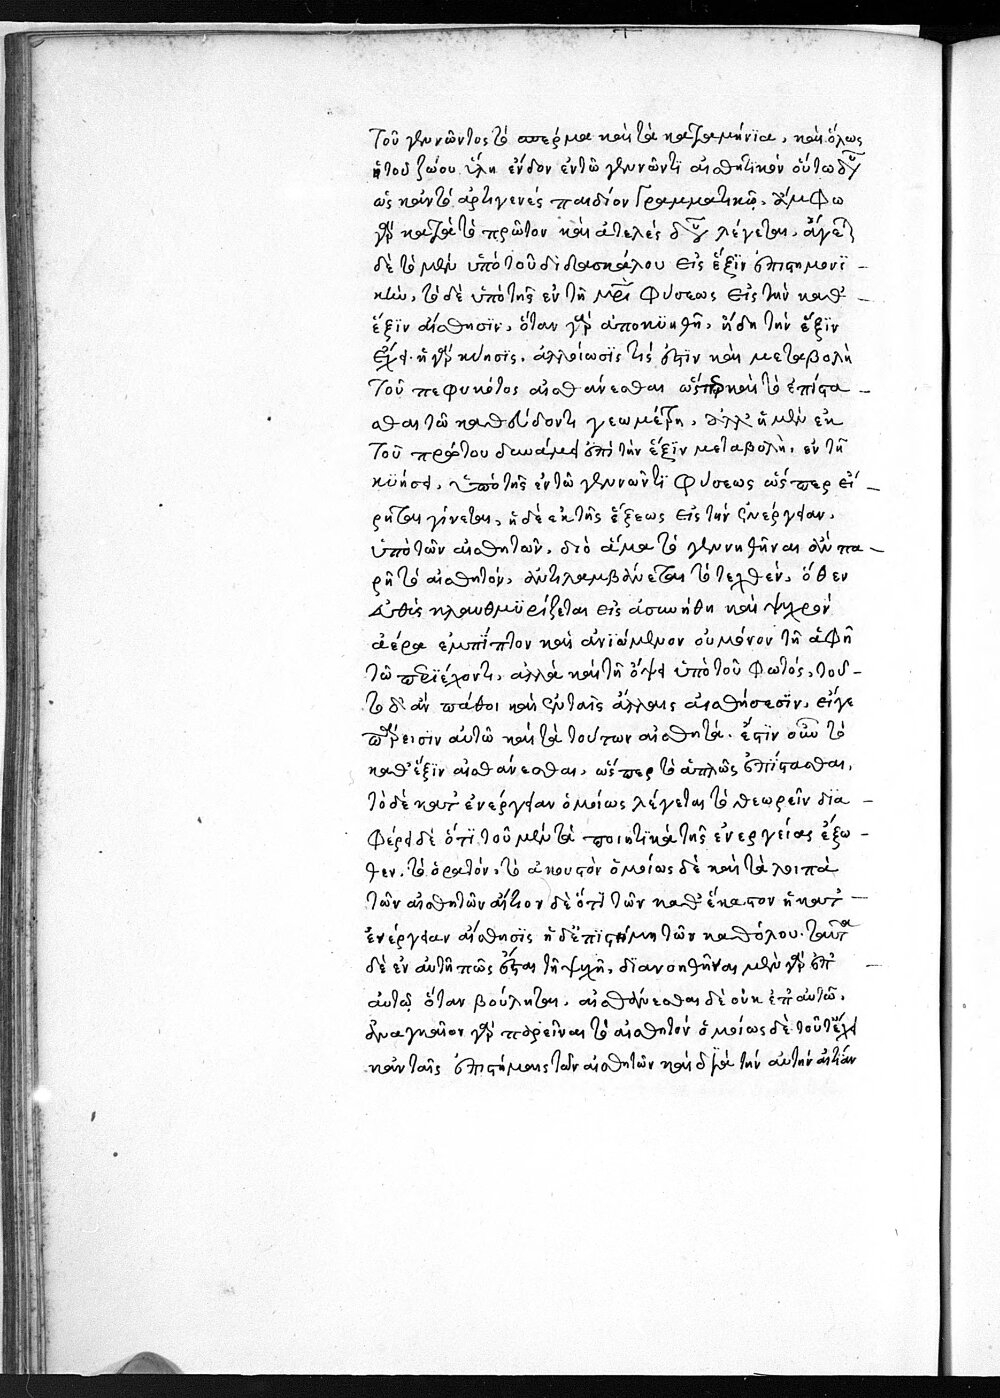 τοῦ γεννῶντος τὸ σπέρμα καὶ τὰ καταμήνϊα, καὶ ὅλως
ἡ τοῦ ζώου ὕλη ἔνδον ἐν τῶ γεννῶντϊ αἰσθητικὸν οὕτω δυ
ὡς κἂν τὸ ἀρτιγενές παιδίον γραμματικῷ. ἄμφω
γὰρ κατὰ τὸ πρῶτον καὶ ἀτελές δυ λέγεται, ἄγεται
δὲ τὸ μὲν ὑπὸ τοῦ διδασκάλου εἰς ἕξϊν ἐπιστημονϊ
κὴν, τὸ δὲ ὑπὸ τῆς ἐν τῆ μρι φύσεως εἰς τὴν καθ'
ἕξϊν αἴσθησϊν, ὅταν γὰρ ἀποκϋηθῆ, ἤδη τὴν ἕξϊν
ἔχει. ἡ γὰρ κύησϊς, ἀλλοίωσϊς τίς ἐστϊν καὶ μεταβολὴ
τοῦ πεφυκότος αἰσθάνεσθαι ὥσπερ καὶ τὸ ἐπίστα
σθαι τῶ καθεύδοντι γεωμέτρη, ἀλλ' ἡ μὲν ἐκ
τοῦ πρώτου δυνάμει ἐπὶ τὴν ἕξϊν μεταβολὴ, ἐν τῆ
κϋήσει, ὑπὸ τῆς ἐν τῶ γεννῶντϊ φύσεως ὥσπερ εἴ
ρηται γίνεται, ἡ δὲ ἐκ τῆς ἕξεως εἰς τὴν ἐνέργειαν,
ὑπὸ τῶν αἰσθητῶν, διὸ ἅμα τὸ γεννηθῆναι ἂν πα
ρῆ τὸ αἰσθητόν, ἀντιλαμβάνεται τὸ τεχθέν, ὅθεν
εὐθὺς κλαυθμϋρίζεται εἰς ἀσυνήθη καὶ ψυχρὸν
ἀέρα ἐμπίπτον καὶ ἀνϊώμενον οὐ μόνον τῆ ἁφῆ
τῶ περϊέχοντι, ἀλλὰ καὶ τῆ ὄψει ὑπὸ τοῦ φωτός, τοῦ
το δ' ἂν πάθοι καὶ ἐν ταῖς ἄλλαις αἰσθήσεσϊν, εἴγε
πάρεισιν αὐτῶ καὶ τὰ τούτων αἰσθητά. ἔστϊν οὖν τὸ
καθ' ἕξϊν αἰσθάνεσθαι, ὥσπερ τὸ ἁπλῶς ἐπίστασθαι,
τὸ δὲ κατ' ἐνέργειαν ὁμοίως λέγεται τὸ θεωρεῖν δϊα
φέρει δὲ ὅτϊ τοῦ μὲν τὰ ποιητϊκὰ τῆς ἐνεργείας ἔξω
θεν, τὸ ὁρατόν, τὸ ἀκουστὸν ὁμοίως δὲ καὶ τὰ λοιπὰ
τῶν αἰσθητῶν αἴτιον δὲ ὅτϊ τῶν καθ' ἕκαστον ἡ κατ'
ἐνέργειαν αἴσθησϊς ἡ δ' ἐπιστήμη τῶν καθόλου. ταῦτα
δὲ ἐν αὐτῆ πῶς ἐστι τῆ ψυχῆ, δϊανοηθῆναι μὲν γὰρ ἐπ'
αὐτῷ ὅταν βούληται, αἰσθάνεσθαι δὲ οὐκ ἐπ' αὐτῶ,
ἀναγκαῖον γὰρ παρεῖναι τὸ αἰσθητόν ὁμοίως δὲ τοῦτ' ἔχει
κἀν ταῖς ἐπιστήμαις τῶν αἰσθητῶν καὶ δϊὰ τὴν αὐτὴν αἰτίαν